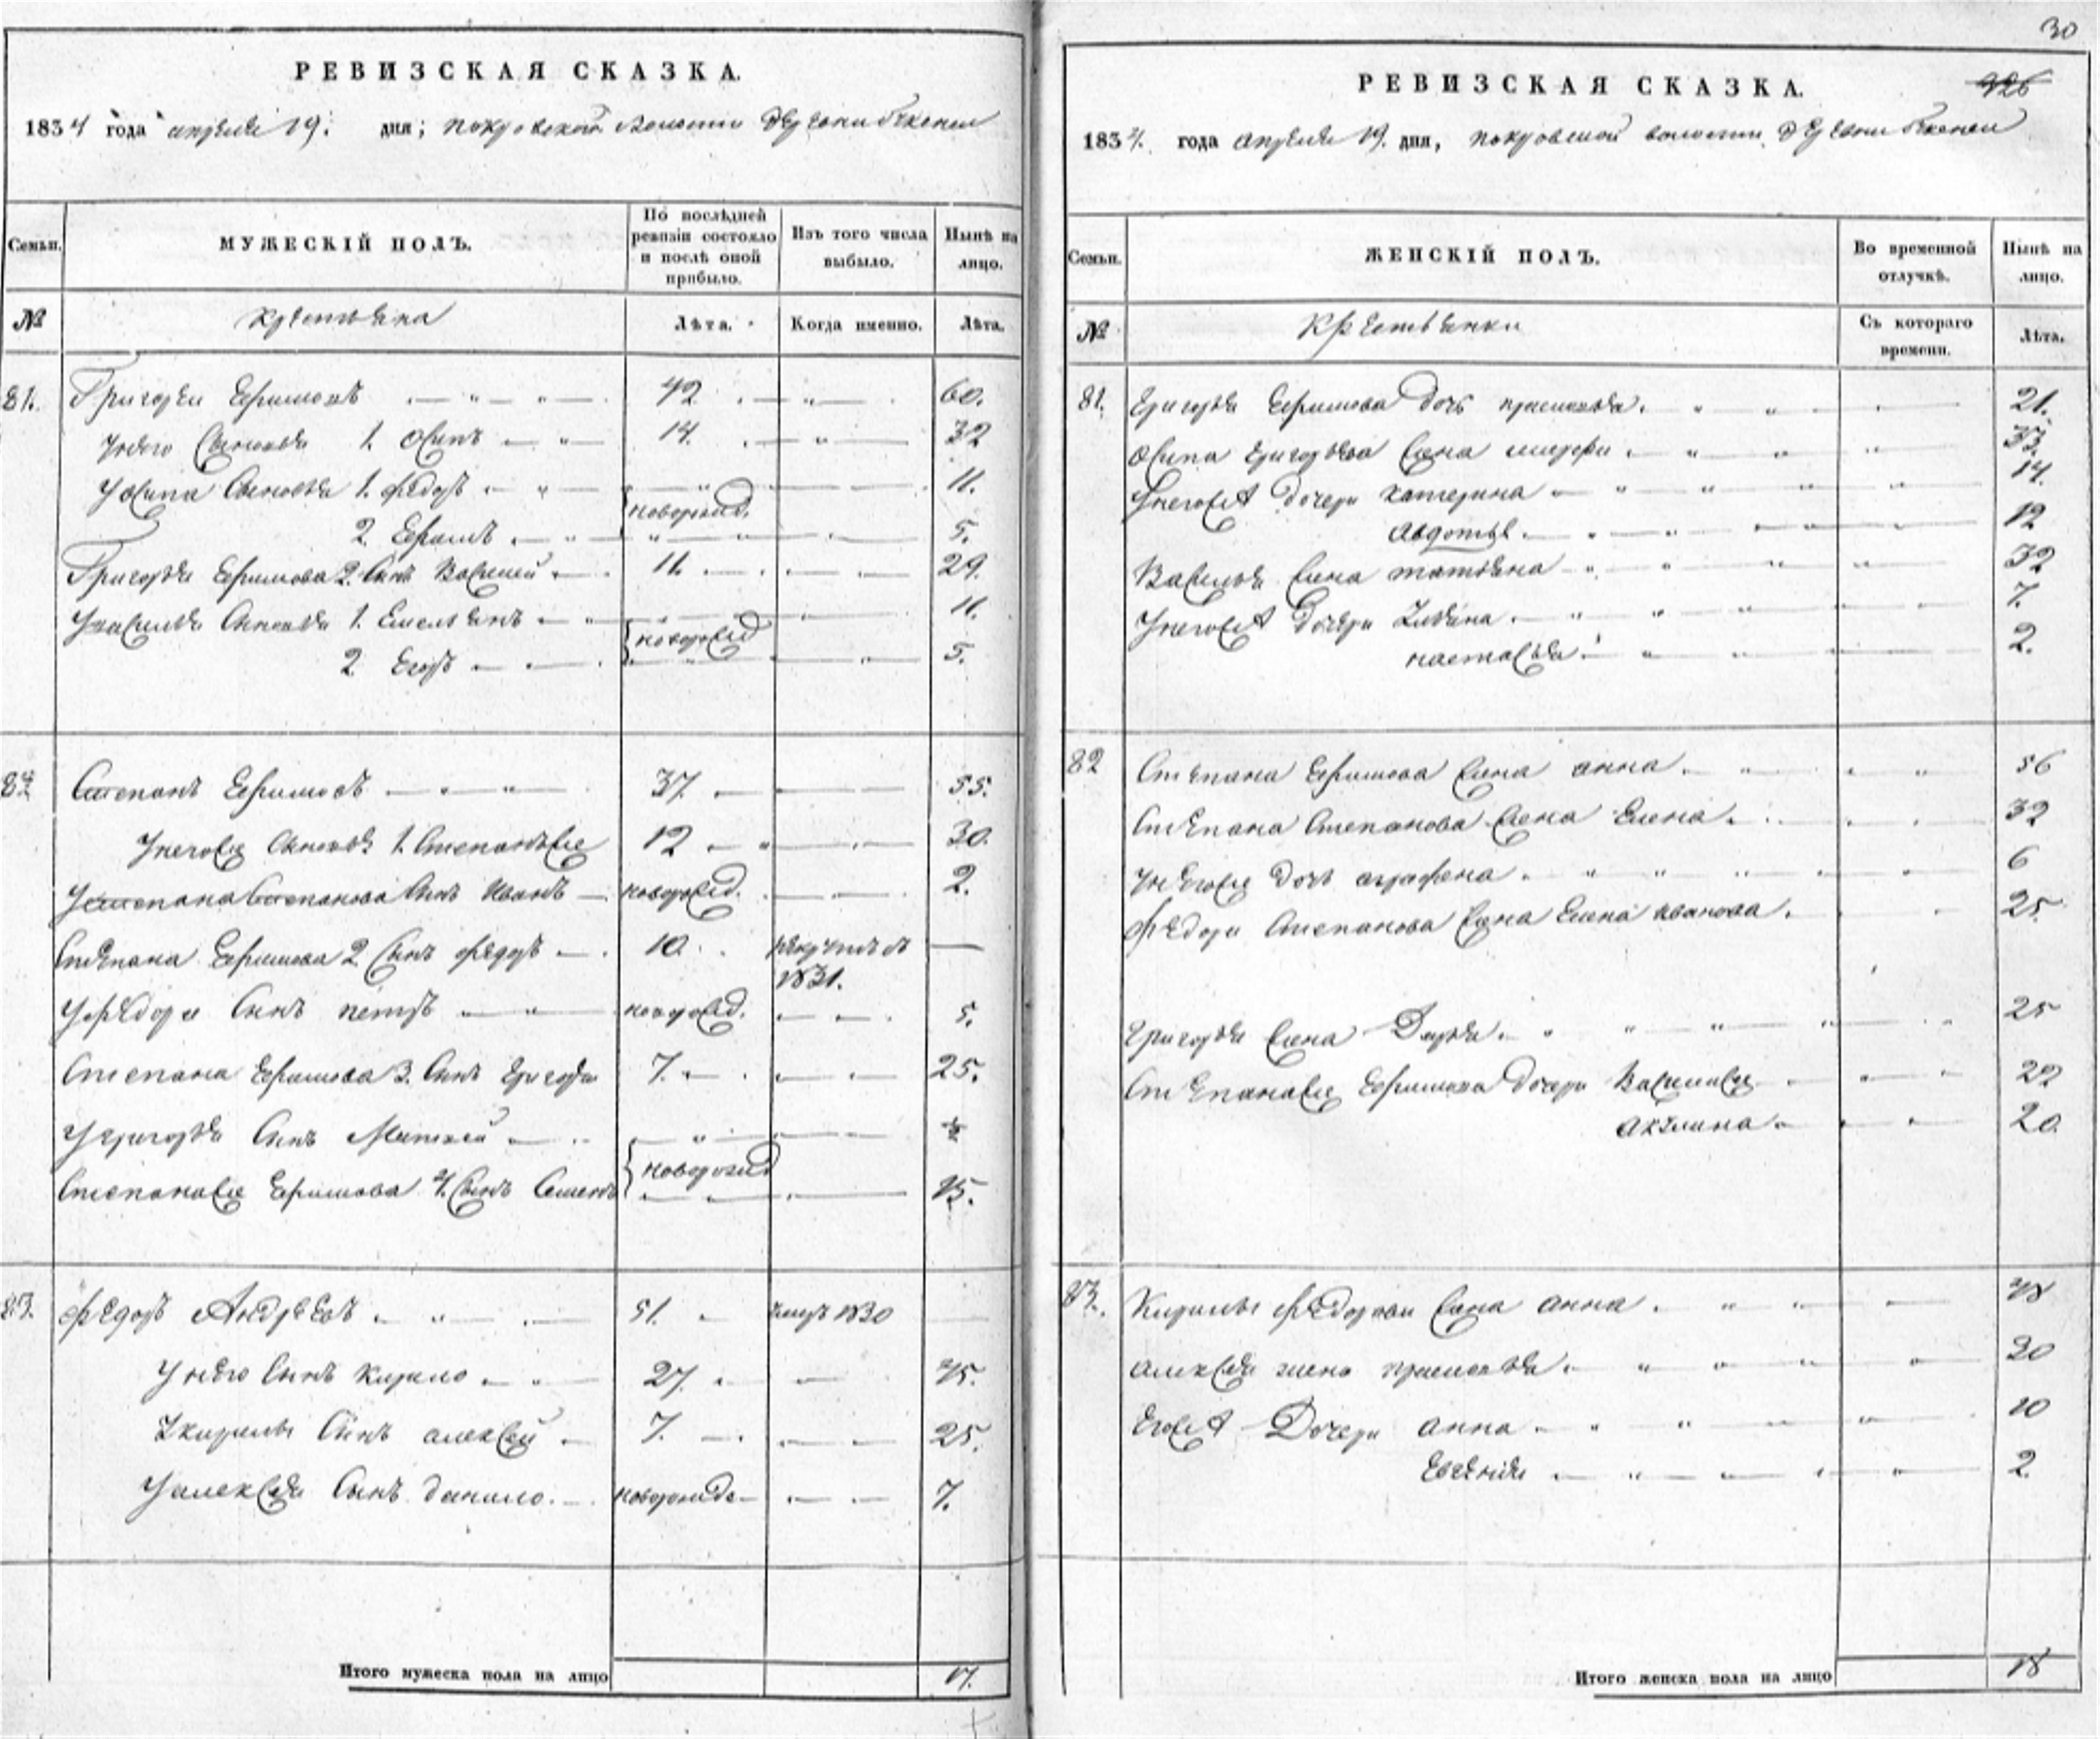 РЕВИЗСКАЯ СКАЗКА.
1834 года апреля 19. дня; покровской волости деревни
МУЖЕСКІЙ ПОЛЪ.
Семьи.
По послѣдней ревизіи состояло и послѣ оной прибыло.
Изъ того числа выбыло.
Нынѣ на лицо.
№
Лѣта.
Когда именно.
Лѣта.
81. Григореи Ефимовъ 42 60.
У него Сыновья 1. Осипъ 14. 32
У Осипа Сыновья 1. федоръ новорожд. 11.
2. Ефимъ 5.
Григорья Ефимова 2. Сынъ Василей 11. 29.
У василья Сыновья 1. Емельянъ новорожд 11.
2. Егоръ 5.
82 Степанъ Ефимовъ 37. 55.
У него Сыновья 1. Степанъ 12 30.
У степана Степанова Сынъ Иванъ новорожд. 2.
Степана Ефимова 2. Сынъ федоръ 10. 1831. —
У федора Сынъ петръ новорожд. 5.
Степана Ефимова 3. Сынъ Григореи 7. 25.
У григорья Сынъ Матвей
Степана Ефимова 4. Сынъ Семенъ новорожд 15.
83. федоръ Андреевъ 51. умеръ 1830
У него Сынъ Кирило 27. 45.
У кирилы Сынъ алексей 7. 25.
У алексея Сынъ данило. новорожде 7.
Итого мужеска пола на лицо 17.
30
РЕВИЗСКАЯ СКАЗКА.
926
1834. года апреля 19. дня, покровской волости деревни
Семьи.
ЖЕНСКІЙ ПОЛЪ.
Во временной отлучкѣ.
Нынѣ на лицо.
№
Крестьянки
Съ котораго времени.
Лѣта.
81. Григорья Ефимова дочь прасковья. 21.
Осипа Григорьева жена 33.
У него дочери катерина 14.
авдотья. 12
Василья жена татьяна 32
У него дочери 7.
настасья 2.
82 Степана Ефимова жена анна. 56
Степана Степанова жена Елена. 32
У него дочь аграфена. 6
федора Степанова жена Елена иванова. 25
Григорья жена Дарья. 25
Степана Ефимова дочери Василиса 22
акулина 20.
83. Кирилы федорова жена анна. 48
алексея жена прасковья. 30
Его дочери анна 10
Евгения 2
Итого женска пола на лицо 18